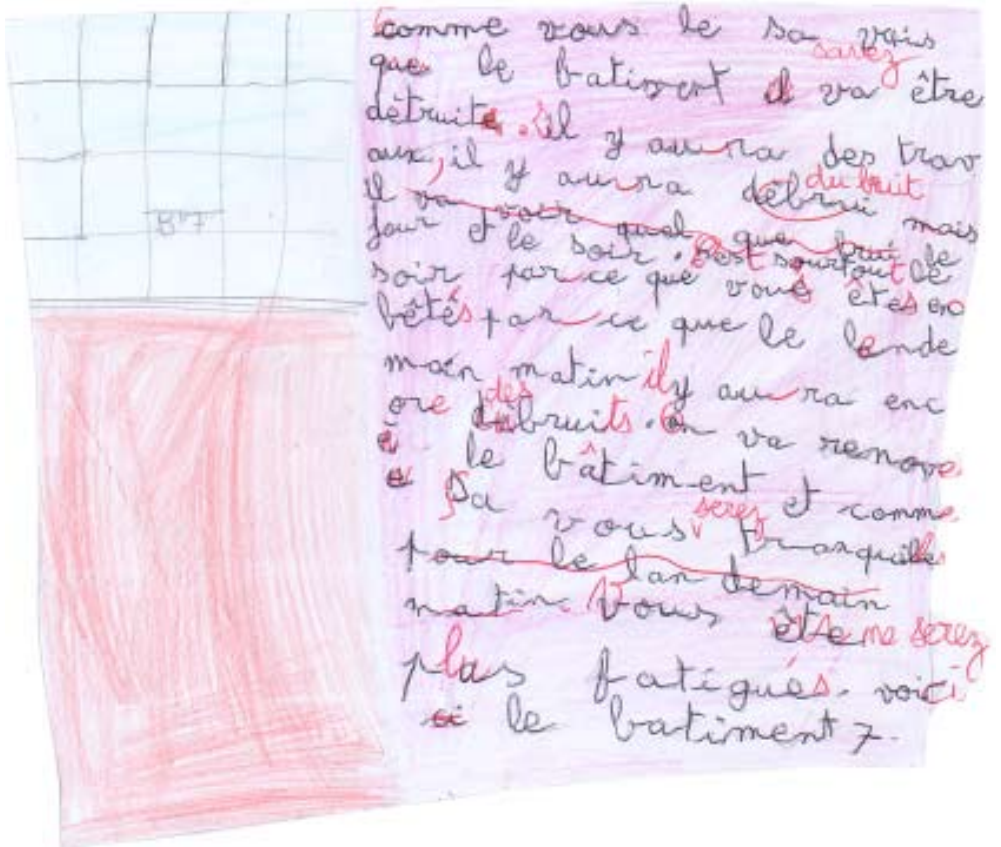 Bt 7
comme vous le sa vais
savez
que le batiment il va être
détruite. il
il y aura des trav
aux, il y aura débrui mais
du bruit
il va voir quel que brui le
jour et le soir. C'est sourtout le
soir par ce que vous êtes en
bêtés par ce que le lende
main matin il y aura enc
ore des bruits. On va renove
le bâtiment et comme
sa vous serez tranquilles
pour le lan demain
matin. Vous être ne serez
plus fatigués. voici
le batiment 7.